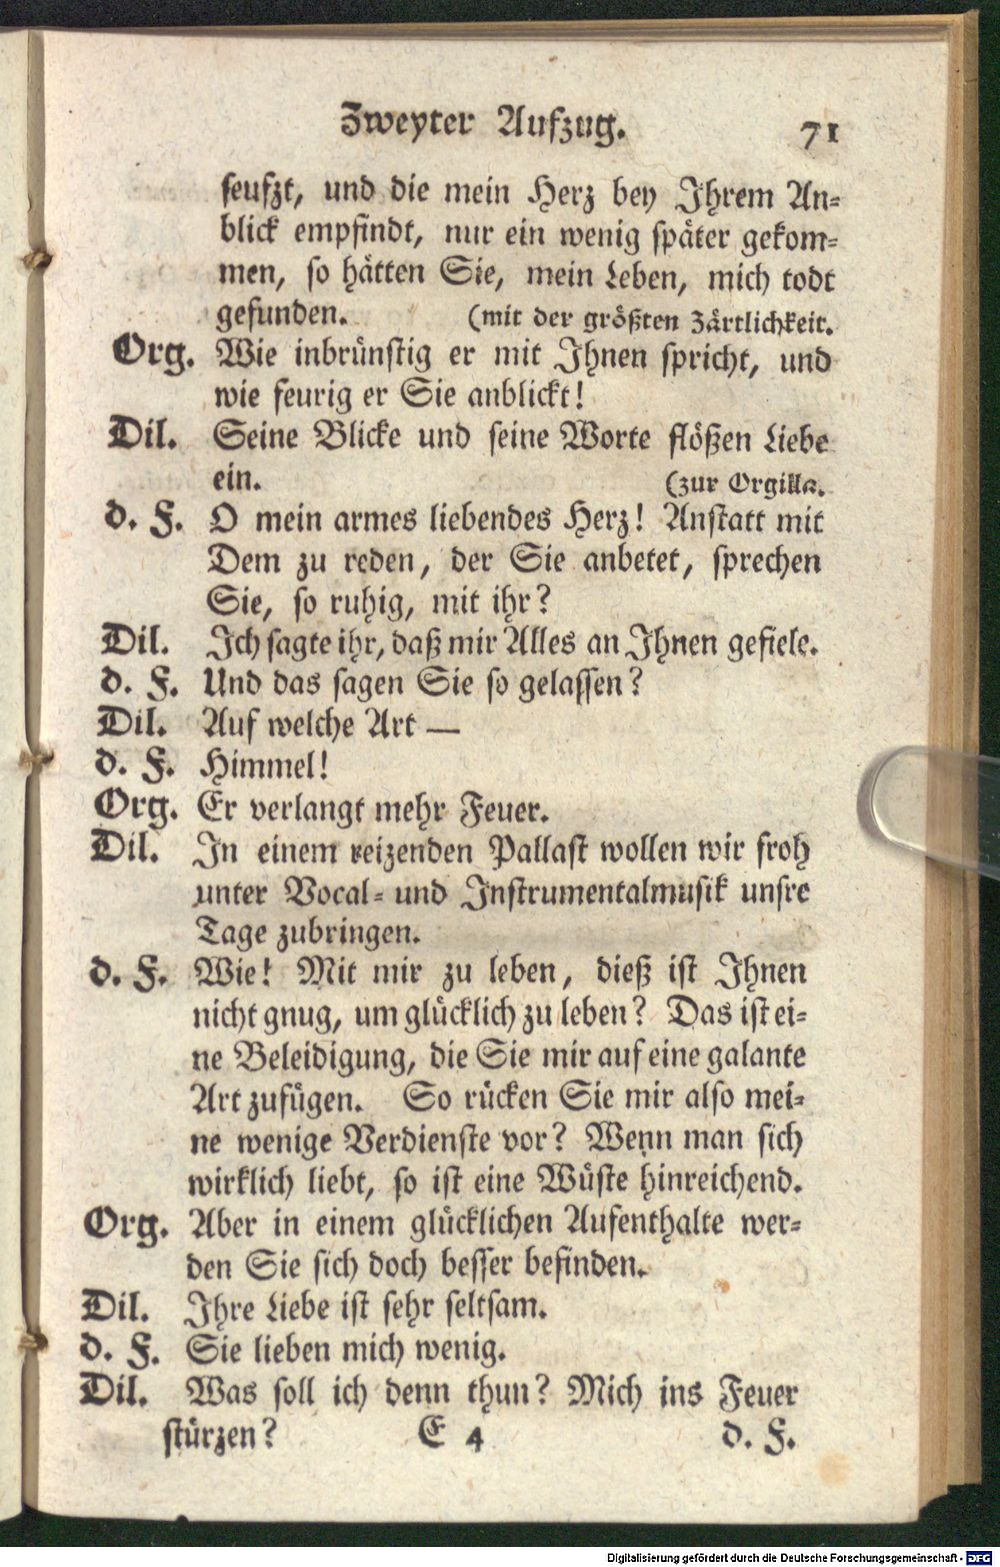 Zweyter Aufzug. 71
seufzt, und die mein Herz bey Ihrem An-
blick empfindt, nur ein wenig später gekom-
men, so hätten Sie, mein Leben, mich todt
gefunden. (mit der größten Zärtlichkeit.
Org. Wie inbrünstig er mit Ihnen spricht, und
wie feurig er Sie anblickt!
Dil. Seine Blicke und seine Worte flößen Liebe
ein. (zur Orgilla.
d. F. O mein armes liebendes Herz! Anstatt mit
Dem zu reden, der Sie anbetet, sprechen
Sie, so ruhig, mit ihr?
Dil. Ich sagte ihr, daß mir Alles an Ihnen gefiele.
d. F. Und das sagen Sie so gelassen?
Dil. Auf welche Art —
d. F. Himmel!
Org. Er verlangt mehr Feuer.
Dil. In einem reizenden Pallast wollen wir froh
unter Vocal- und Instrumentalmusik unsre
Tage zubringen.
d. F. Wie! Mit mir zu leben, dieß ist Ihnen
nicht gnug, um glücklich zu leben? Das ist ei-
ne Beleidigung, die Sie mir auf eine galante
Art zufügen. So rücken Sie mir also mei-
ne wenige Verdienste vor? Wenn man sich
wirklich liebt, so ist eine Wüste hinreichend.
Org. Aber in einem glücklichen Aufenthalte wer-
den Sie sich doch besser befinden.
Dil. Ihre Liebe ist sehr seltsam.
d. F. Sie lieben mich wenig.
Dil. Was soll ich denn thun? Mich ins Feuer
stürzen? E 4 d. F.
Digitalisierung gefördert durch die Deutsche Forschungsgemeinschaft - DFG